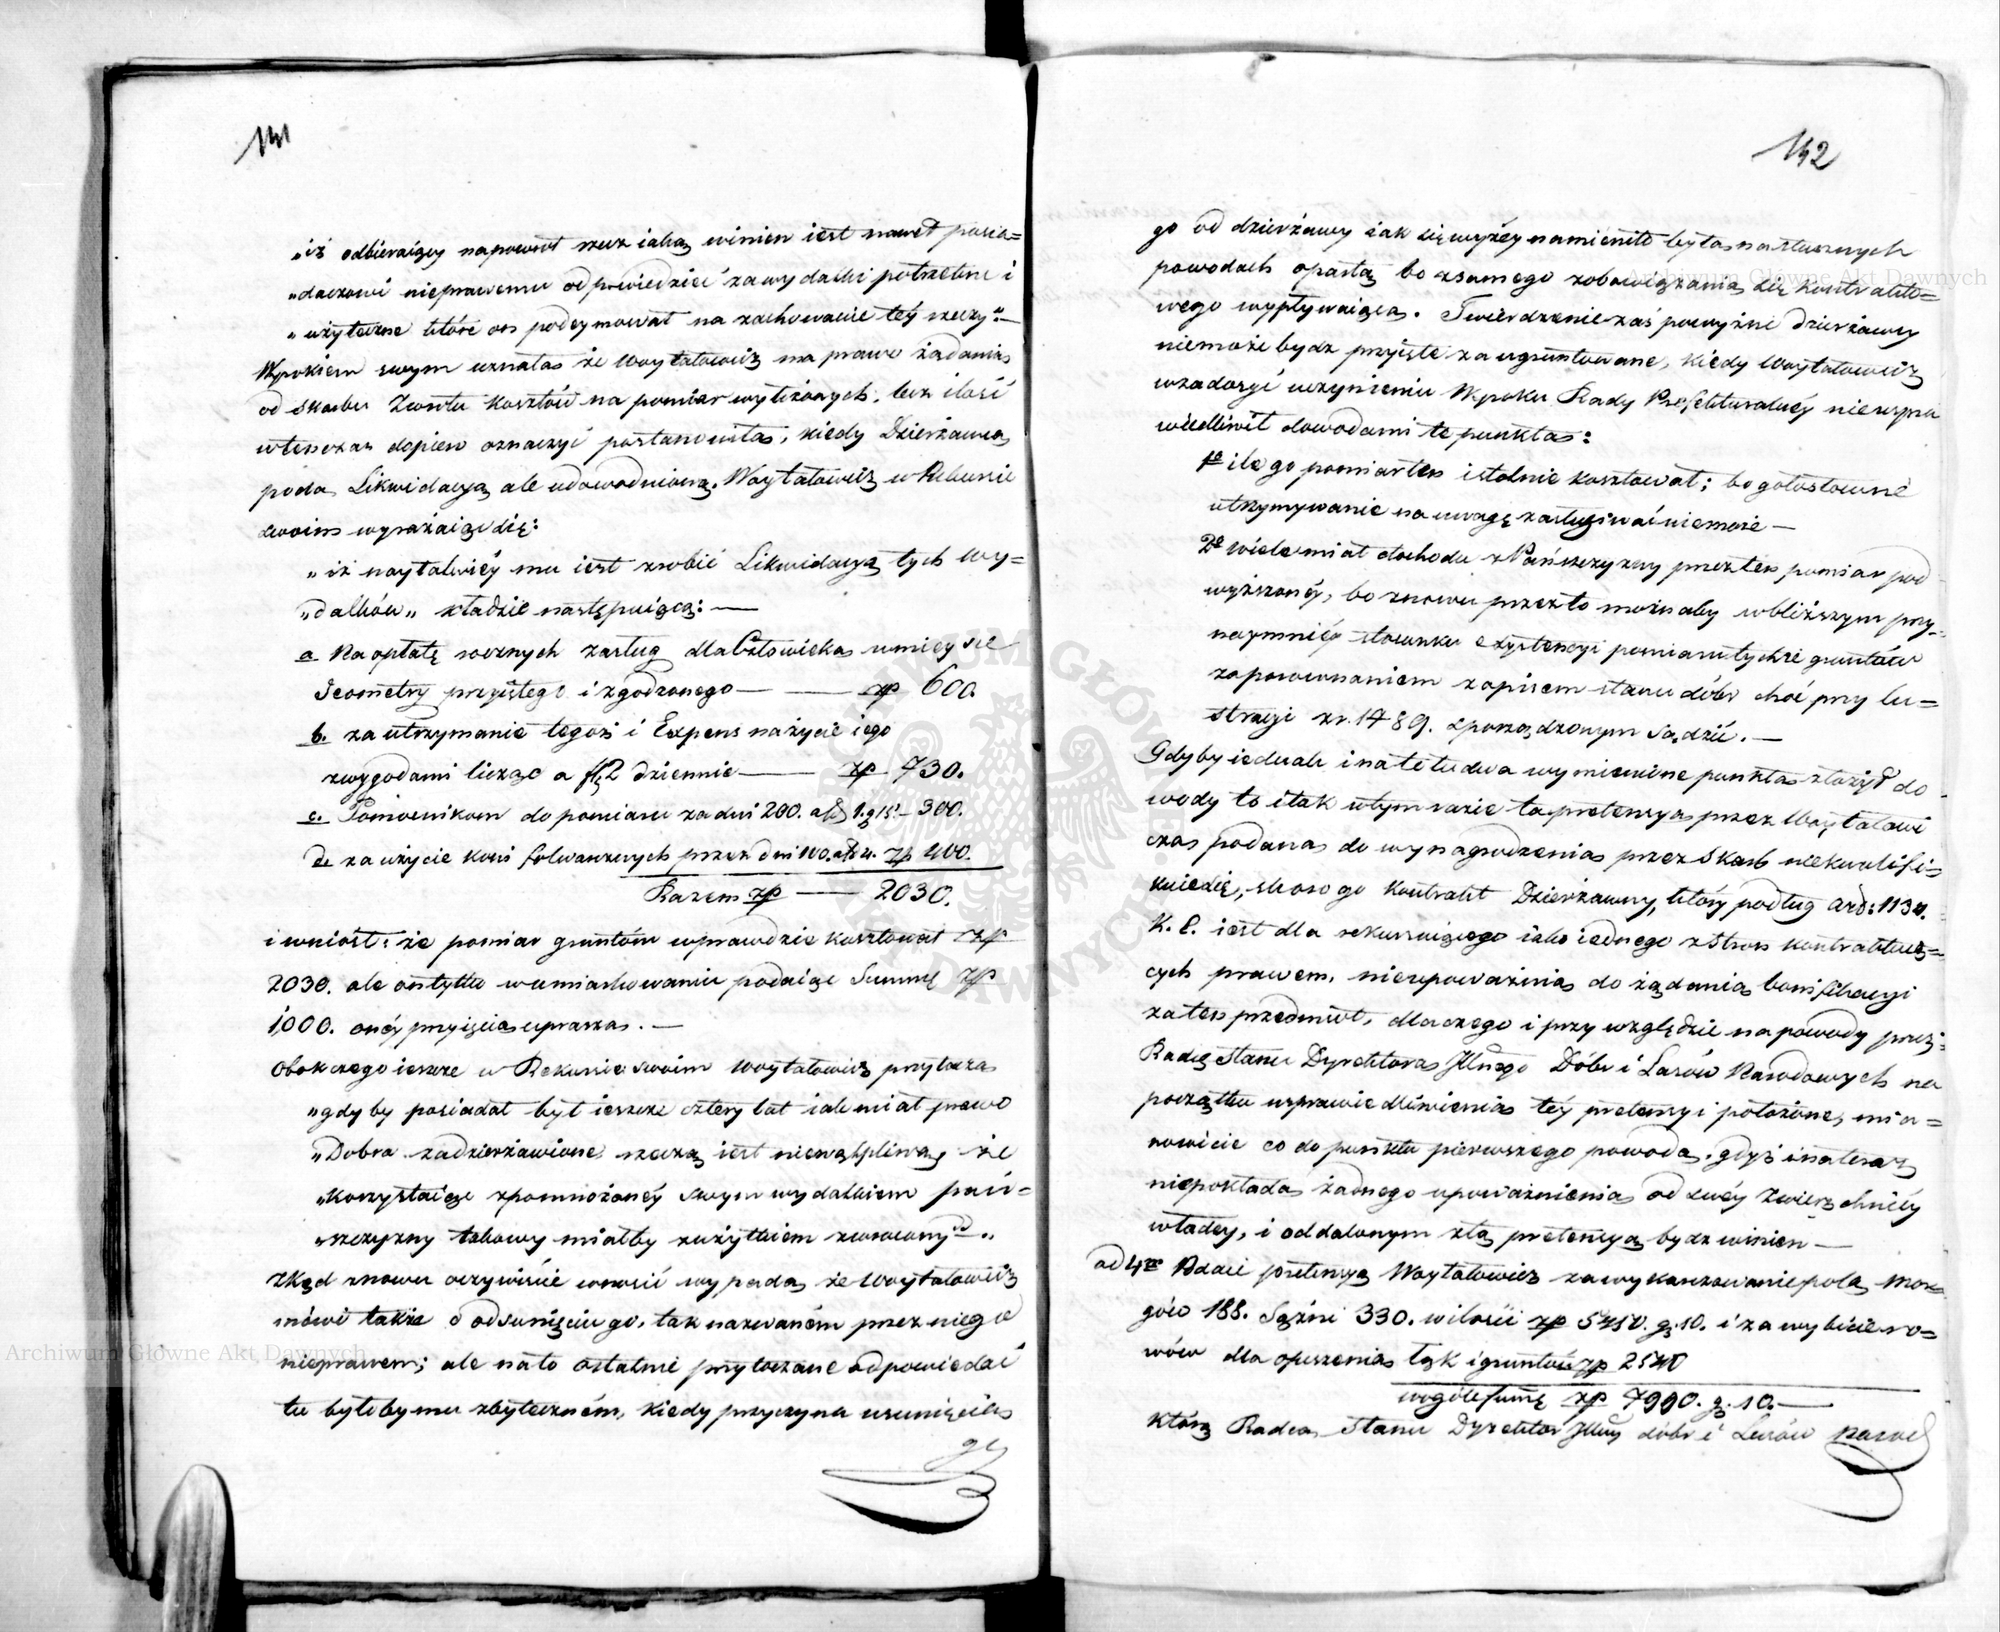 141
„iż odbieraiący napowrót rzecz iaką winien iest nawet posia=
„daczowi nieprawemu odpowiedzieć za wydatki potrzebne i
„użyteczne które on podeymował na zachowanie tey rzeczy" —
Wyrokiem swym uznała że Woytałowicz ma prawo żądania
od Skarbu Zwrotu kosztów na pomiar wyłożonych, lecz ilość
wtenczas dopiero oznaczyć postanowiła, kiedy Dzierżawca
poda Likwidacyą ale udowodnioną. Woytałowicz w Rekursie
swoim wyrażaiąc się:
„iż naytatwiéy mu iest zrobić Likwidacyą tych wy=
„datków„ kładzie następuiącą: —
a Na opłatę rocznych zasług dla Człowieka umieją się
Jeometry przyiętego i zgodzonego — — zp 600.
b. za utrzymanie tegoż i Expens na życie iego
z wygodami licząc a f 2 dziennie — zp 730.
c. Pomocnikom do pomiaru za dni 200. a f 1. g 15 — 300.
d. za użycie koni folwarcznych przez dni 100. a f 4. zp 400.
Razem zp — 2030.
i wniósł: że pomiar gruntów wprawdzie kosztował zp
2030. ale on tylko w umiarkowaniu podaiąc Summę zp
1,000. onéy przyięcia uprasza. —
Obok czego ieszcze w Rekursie swoim Woytałowicz przytacza
„gdyby posiadał był ieszcze cztery lat iak miał prawo
„Dobra zadzierżawione rzeczą iest niewątpliwą, że
„korzystaiąc z pomnożonéy swym wydatkiem pań=
„szczyzny takowy miałby z użytkiem zwrócony".
Zkąd znowu oczywiście wnosić wypada, że Woytałowicz
mówi także o odsunięciu go, tak nazwaném przez niego
nieprawem; ale na to ostatnie przytoczane odpowiedać
tu byłoby mu zbyteczném, kiedy przyczyna usunięcia
go
142
go od dzierżawy iak się wyżéy namieniło była na słusznych
powodach opartą bo z samego zobowiązania się kontrakto=
wego wypływaiąca. Twierdzenie zaś powyższe dzierżawcy
niemoże bydz przyięte za ugruntowane, kiedy Woytałowicz
w zadosyć uczynieniu Wyroku Rady Prefekturalnéy nieuspra
wiedliwił dowodami te punkta:
1e ile go pomiar ten istotnie kosztował; bo gołosłowne
utrzymywanie na uwagę zasługiwać niemoże —
2e wiele miał dochodu z Pańszczyzny przez ten pomiar pod
wyższonéy, bo znowu przez to możnaby w bliższym przy=
naymniéy stosunku exystencyi pomiaru tychże gruntów
z porównaniem z opisem stanu dóbr choć przy lu=
stracyi z r. 1789. sporządzonym sądzić. —
Gdyby iednak i na te tu dwa wymienione punkta złożył do
wody to i tak w tym razie ta pretensya przez Woytałowi
cza podana do wynagrodzenia przez Skarb niekwalifi=
kuie się, skoro go kontrakt Dzierżawny, który podług Art: 1134.
K. C. iest dla rekursuiącego iako iednego z Stron kontraktuią=
cych prawem, nieupoważnia do żądania bonifikacyi
za ten przedmiot, dla czego i przy względzie na powody przez
Radcę Stanu Dyrektora Jlnego Dóbr i Lasów Narodowych na
początku usprawiedliwienia téy pretensyi położone, mia=
nowicie co do punktu pierwszego powoda, gdyż i na teraz
niepokłada żadnego upoważnienia od swéy Zwierzchniéy
władzy, i oddalonym z tą pretensyą bydz winien —
ad 4te Podaie pretensyą Woytałowicz za wykarczowanie pola Mor=
gów 188. Sążni 330. w ilości zp 5450. g. 10. i za wybicie ro=
wów dla osuszenia łąk i gruntów zp 2540
w ogóle summę zp 7990. g. 10. —
którą Radca Stanu Dyrektor Jlny dóbr i Lasów Narod
Archiwum Główne Akt Dawnych
Archiwum Główne Akt Dawnych
ARCHIWUM GŁÓWNE AKT DAWNYCH